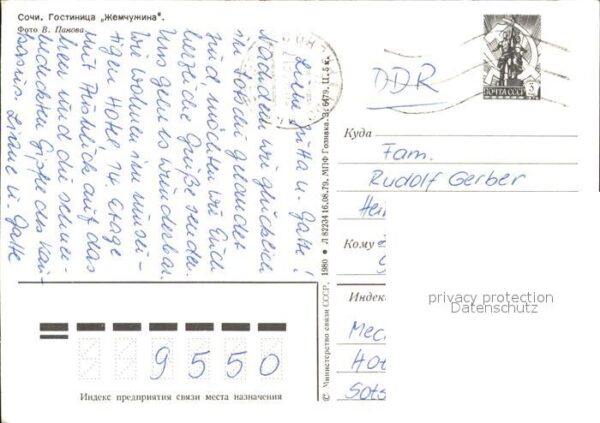 Сочи. Гостиница „Жемчужина".
Фото В. Панова
Liebe Jutta u. Gatte!
Nachdem wir glücklich
in Sotschi gelandet
sind möchten wir Euch
herzliche Grüße senden.
Uns geht es wunderbar.
Wir wohnen im
Hotel 14. Etage
mit Ausblick auf das
Meer und die schnee-
bedeckten Gipfel des Kau-
kasus. Liane u. Gatte
© Министерство связи СССР, 1980 ● Л 82234 16.08.79. МПФ Гознака. З. 6479. Ц. 5 к.
DDR
ПОЧТА СССР
Куда
Fam.
Rudolf Gerber
Hei
Кому
privacy protection
Datenschutz
Индекс
Mec
Hot
Sots
9550
Индекс предприятия связи места назначения